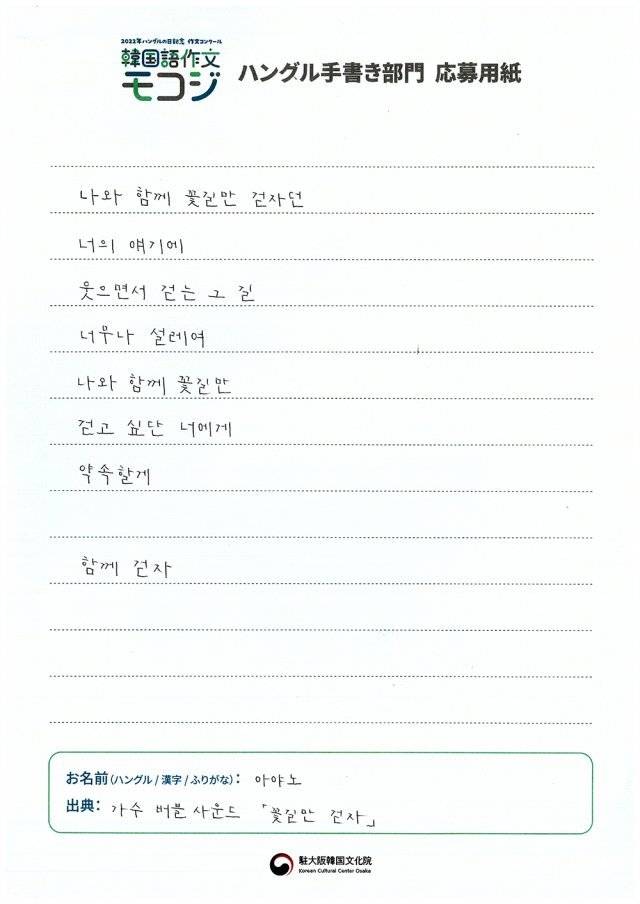 2022年ハングルの日記念 作文コンクール
韓国語作文
モコジ
ハングル手書き部門 応募用紙
나와 함께 꽃길만 걷자던
너의 얘기에
웃으면서 걷는 그 길
너무나 설레여
나와 함께 꽃길만
걷고 싶단 너에게
약속할게
함께 걷자
お名前(ハングル / 漢字 / ふりがな): 아야노
出典: 가수 버블 사운드 「꽃길만 걷자」
駐大阪韓国文化院
Korean Cultural Center Osaka